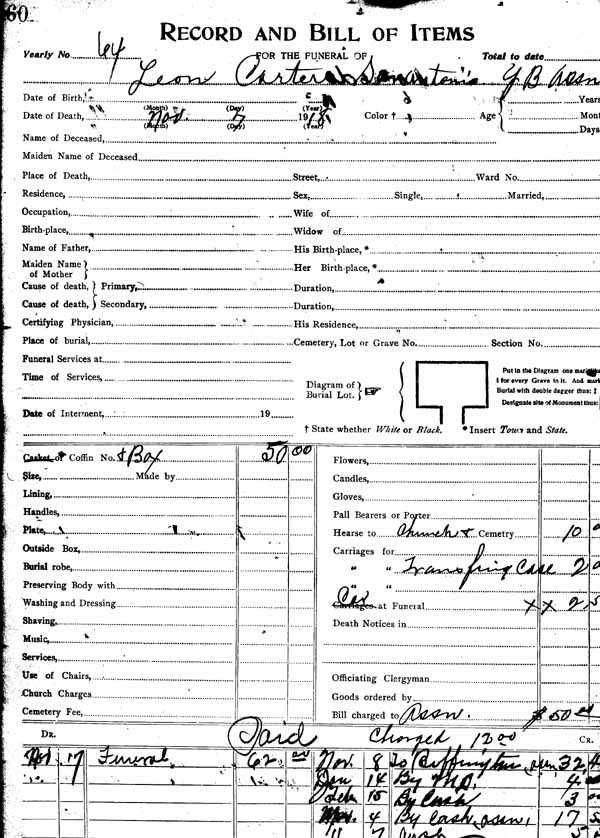 60
RECORD AND BILL OF ITEMS
Yearly No. 64 FOR THE FUNERAL OF Total to date
Leon Carter San Antonio Y. B. Assn
Date of Birth, (Month) (Day) (Year) Years
Date of Death, Nov. 7 1918 (Month) (Day) (Year) Color † Age Mont
Days
Name of Deceased,
Maiden Name of Deceased
Place of Death, Street, Ward No.
Residence, Sex, Single, Married,
Occupation, Wife of
Birth-place, Widow of
Name of Father, His Birth-place, *
Maiden Name of Mother Her Birth-place, *
Cause of death, Primary, Duration,
Cause of death, Secondary, Duration,
Certifying Physician, His Residence,
Place of burial, Cemetery, Lot or Grave No. Section No.
Funeral Services at
Time of Services,
Diagram of Burial Lot.
Put in the Diagram one mark
for every Grave in it. And mark
Burial with double dagger thus: ‡
Designate site of Monument thus:
Date of Interment, 19
† State whether White or Black. * Insert Town and State.
Casket or Coffin No. & Box 50 00 Flowers,
Size, Made by Candles,
Lining, Gloves,
Handles, Pall Bearers or Porter
Plate, Hearse to Church & Cemetry 10
Outside Box, Carriages for
Burial robe, " " Transfring Case 2 0
Preserving Body with " "
Washing and Dressing Car Carriages at Funeral X X 2 5
Shaving, Death Notices in
Music,
Services,
Use of Chairs, Officiating Clergyman
Church Charges Goods ordered by
Cemetery Fee, Bill charged to Assn. $50
DR. Paid Charged 12 00 CR.
17 Funeral 62 00 Nov. 8 32
Jan 14 By 4
Feb 15 By Cash 3
4 By Cash assn. 17 5
11 7 Cash 5